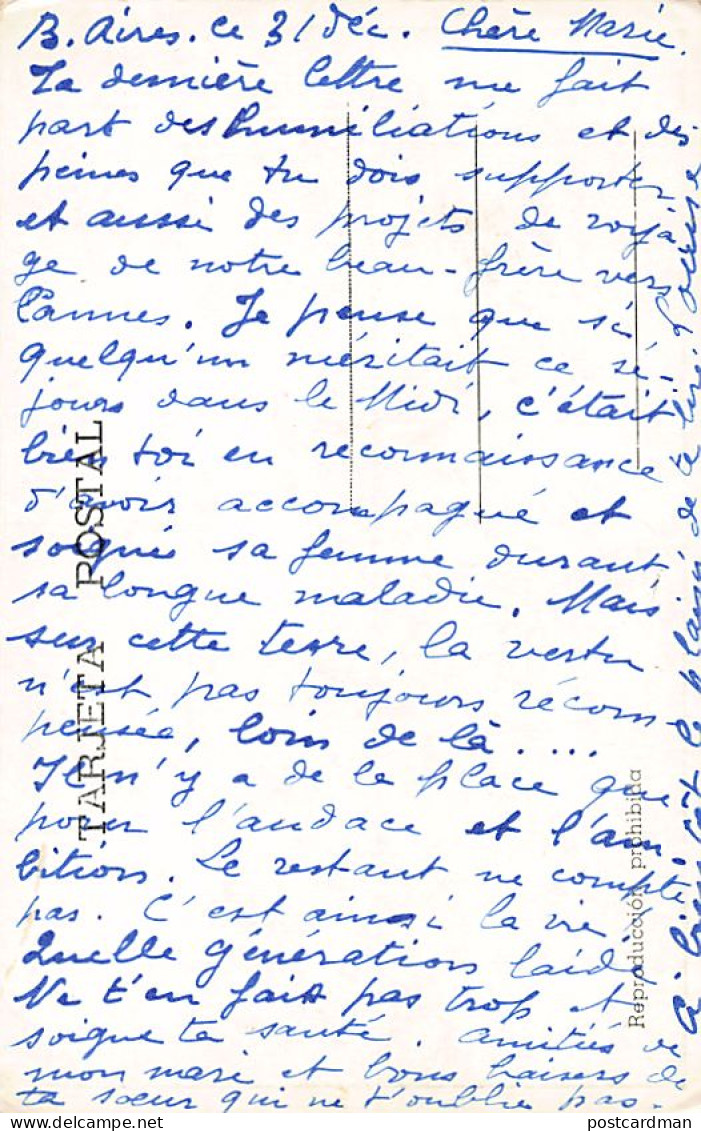 B. Aires. ce 31 déc. Chère Marie.
Ta dernière lettre me fait
part des humiliations et des
peines que tu dois supporter
et aussi des projets de voya-
ge de notre beau-frère vers
Cannes. Je pense que si
quelqu'un méritait ce sé-
jours dans le Midi, c'était
bien toi en reconnaissance
d'avoir accompagné et
soigné sa femme durant
sa longue maladie. Mais
sur cette terre, la vertu
n'est pas toujours récom-
pensée, loin de là....
Il n'y a de la place que
pour l'audace et l'am-
bition. Le restant ne compte
pas. C'est ainsi la vie!
Quelle génération laide
Ne t'en fait pas trop et
soigne ta santé. Amitiés de
mon mari et bons baisers de
ta sœur qui ne t'oublie pas.
le plaisir de te lire. Louise
TARJETA POSTAL
Reproducción prohibida
postcardman